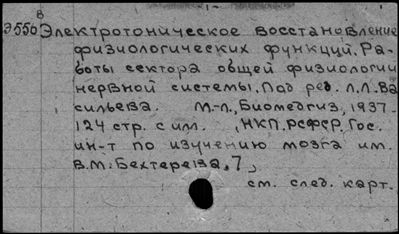 - 1 -
В
Э550 Электротоническое восстановление
физиологических функций. Ра-
боты сектора общей физиологии
нервной системы. Под ред. Л.Л. Ва
сильева. М.-Л., Биомедгиз, 1937.
124 стр. с илл. , НКП. РСФСР, Гос.
ин-т по изучению мозга им.
В.М. Бехтерева, 7,
см. след. карт.